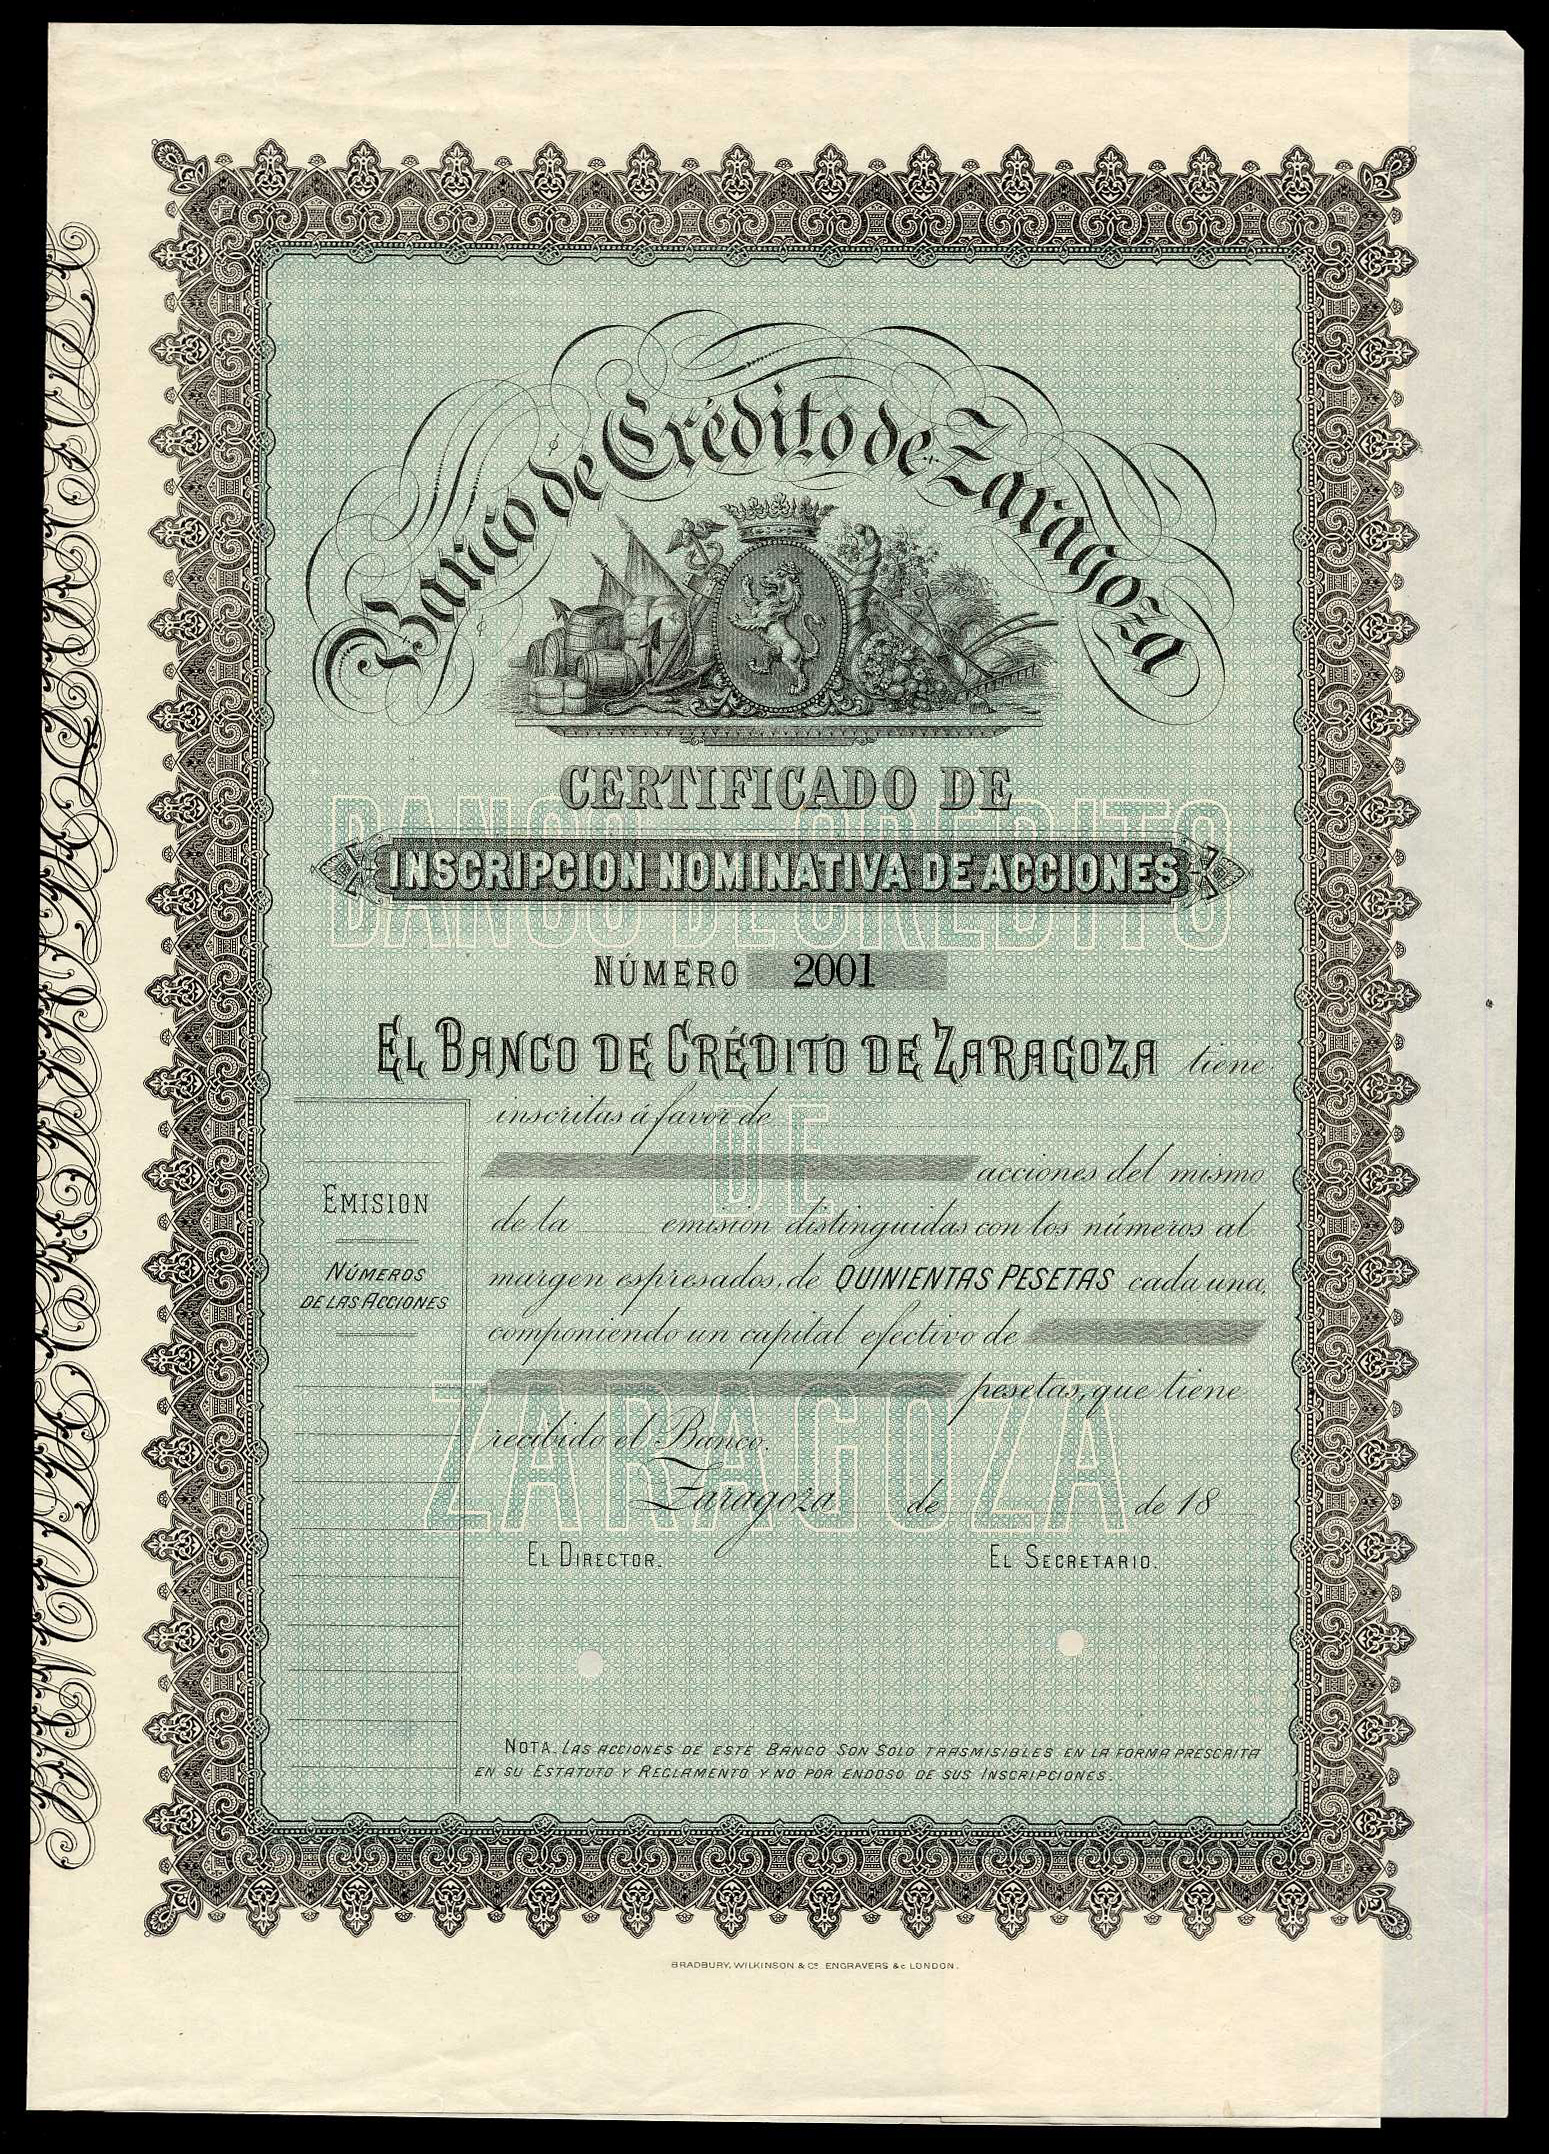 Banco de Crédito de Zaragoza
CERTIFICADO DE
INSCRIPCION NOMINATIVA DE ACCIONES
NÚMERO 2001
EL BANCO DE CRÉDITO DE ZARAGOZA tiene
inscritas á favor de
acciones del mismo
de la emisión distinguidas con los números al
margen espresados, de QUINIENTAS PESETAS cada una,
componiendo un capital efectivo de
pesetas, que tiene
recibido el Banco.
Zaragoza de de 18
EL DIRECTOR. EL SECRETARIO.
EMISION
NÚMEROS
DE LAS ACCIONES
NOTA. LAS ACCIONES DE ESTE BANCO SON SOLO TRASMISIBLES EN LA FORMA PRESCRITA
EN SU ESTATUTO Y REGLAMENTO Y NO POR ENDOSO DE SUS INSCRIPCIONES.
BANCO DE CREDITO
DE
ZARAGOZA
BRADBURY, WILKINSON & Co. ENGRAVERS &c LONDON.